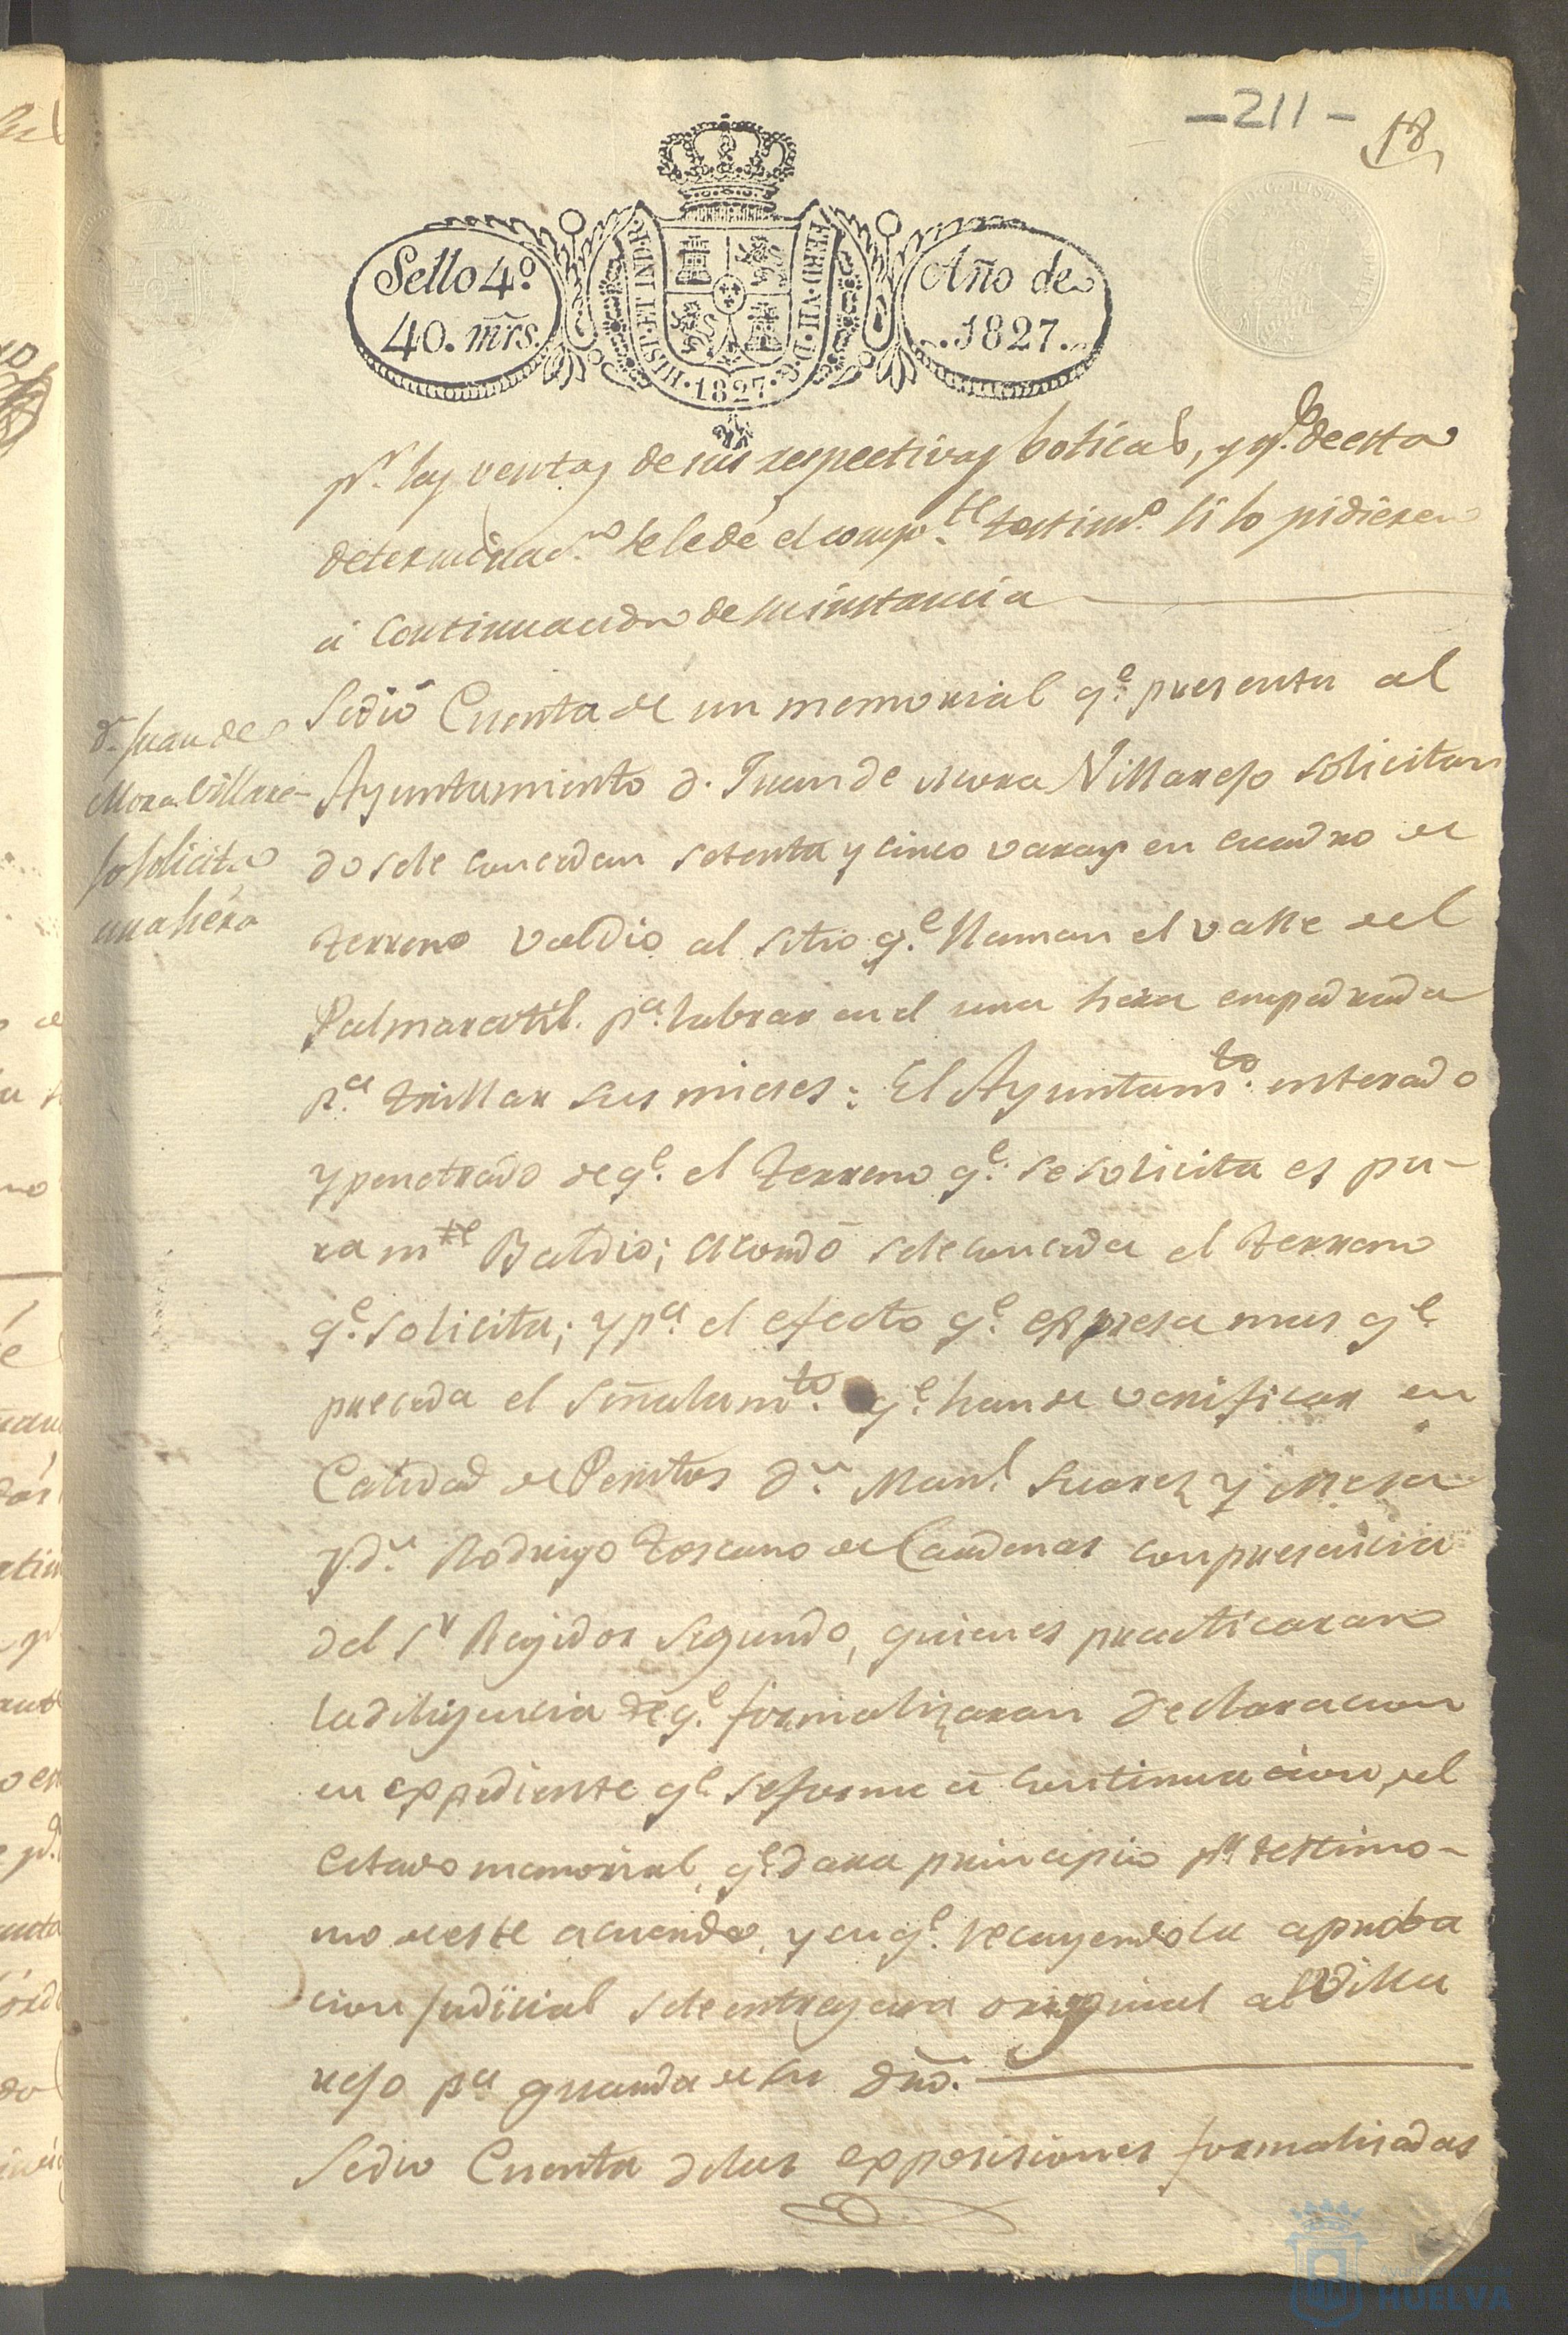 -211-
18
Sello 4º
40. mrs.
HISP. ET IND. R.
FERD. VII. D. G.
1827.
Año de
1827.
pr. las ventas de sus respectivas boticas, y qe. de esta
determinacn. se le dé el compte. testimo. si lo pidieren
á continuacion de su instancia
Dn. Juan de
Mora Villare-
jo solicita
una héra
Se dió Cuenta de un memorial qe. presenta al
Ayuntamiento d. Juan de Mora Villarejo solicitan
dosele concedan setenta y cinco varas en cuadro de
terreno valdio al sitio qe. llaman el valle del
pa. labrar en el una hera empedrada
pa. trillar sus mieses: El Ayuntamto. enterado
y penetrado de qe. el terreno qe. se solicita es pu-
ramte Baldio; acordó sele conceda el terreno
qe. solicita; y pa. el efecto qe. expresa mas qe.
preceda el señalamto. qe. han de verificar en
Calidad de Peritos Dn. Manl. Suarez y Mesa
y dn. Rodrigo Toscano de Cardenas con presencia
del Sr Regidor segundo, quienes practicaran
la diligencia de qe. formalizaran declaracion
en expediente qe. se forme á continuacion del
citado memorial, qe. dara principio pr. testimo-
nio de este acuerdo, y en qe. recayendo la aproba
cion judicial sele entregara original al Villa
rejo pa guarda de su dro.
Se dio Cuenta delas exposisiones formalisadas
HUELVA